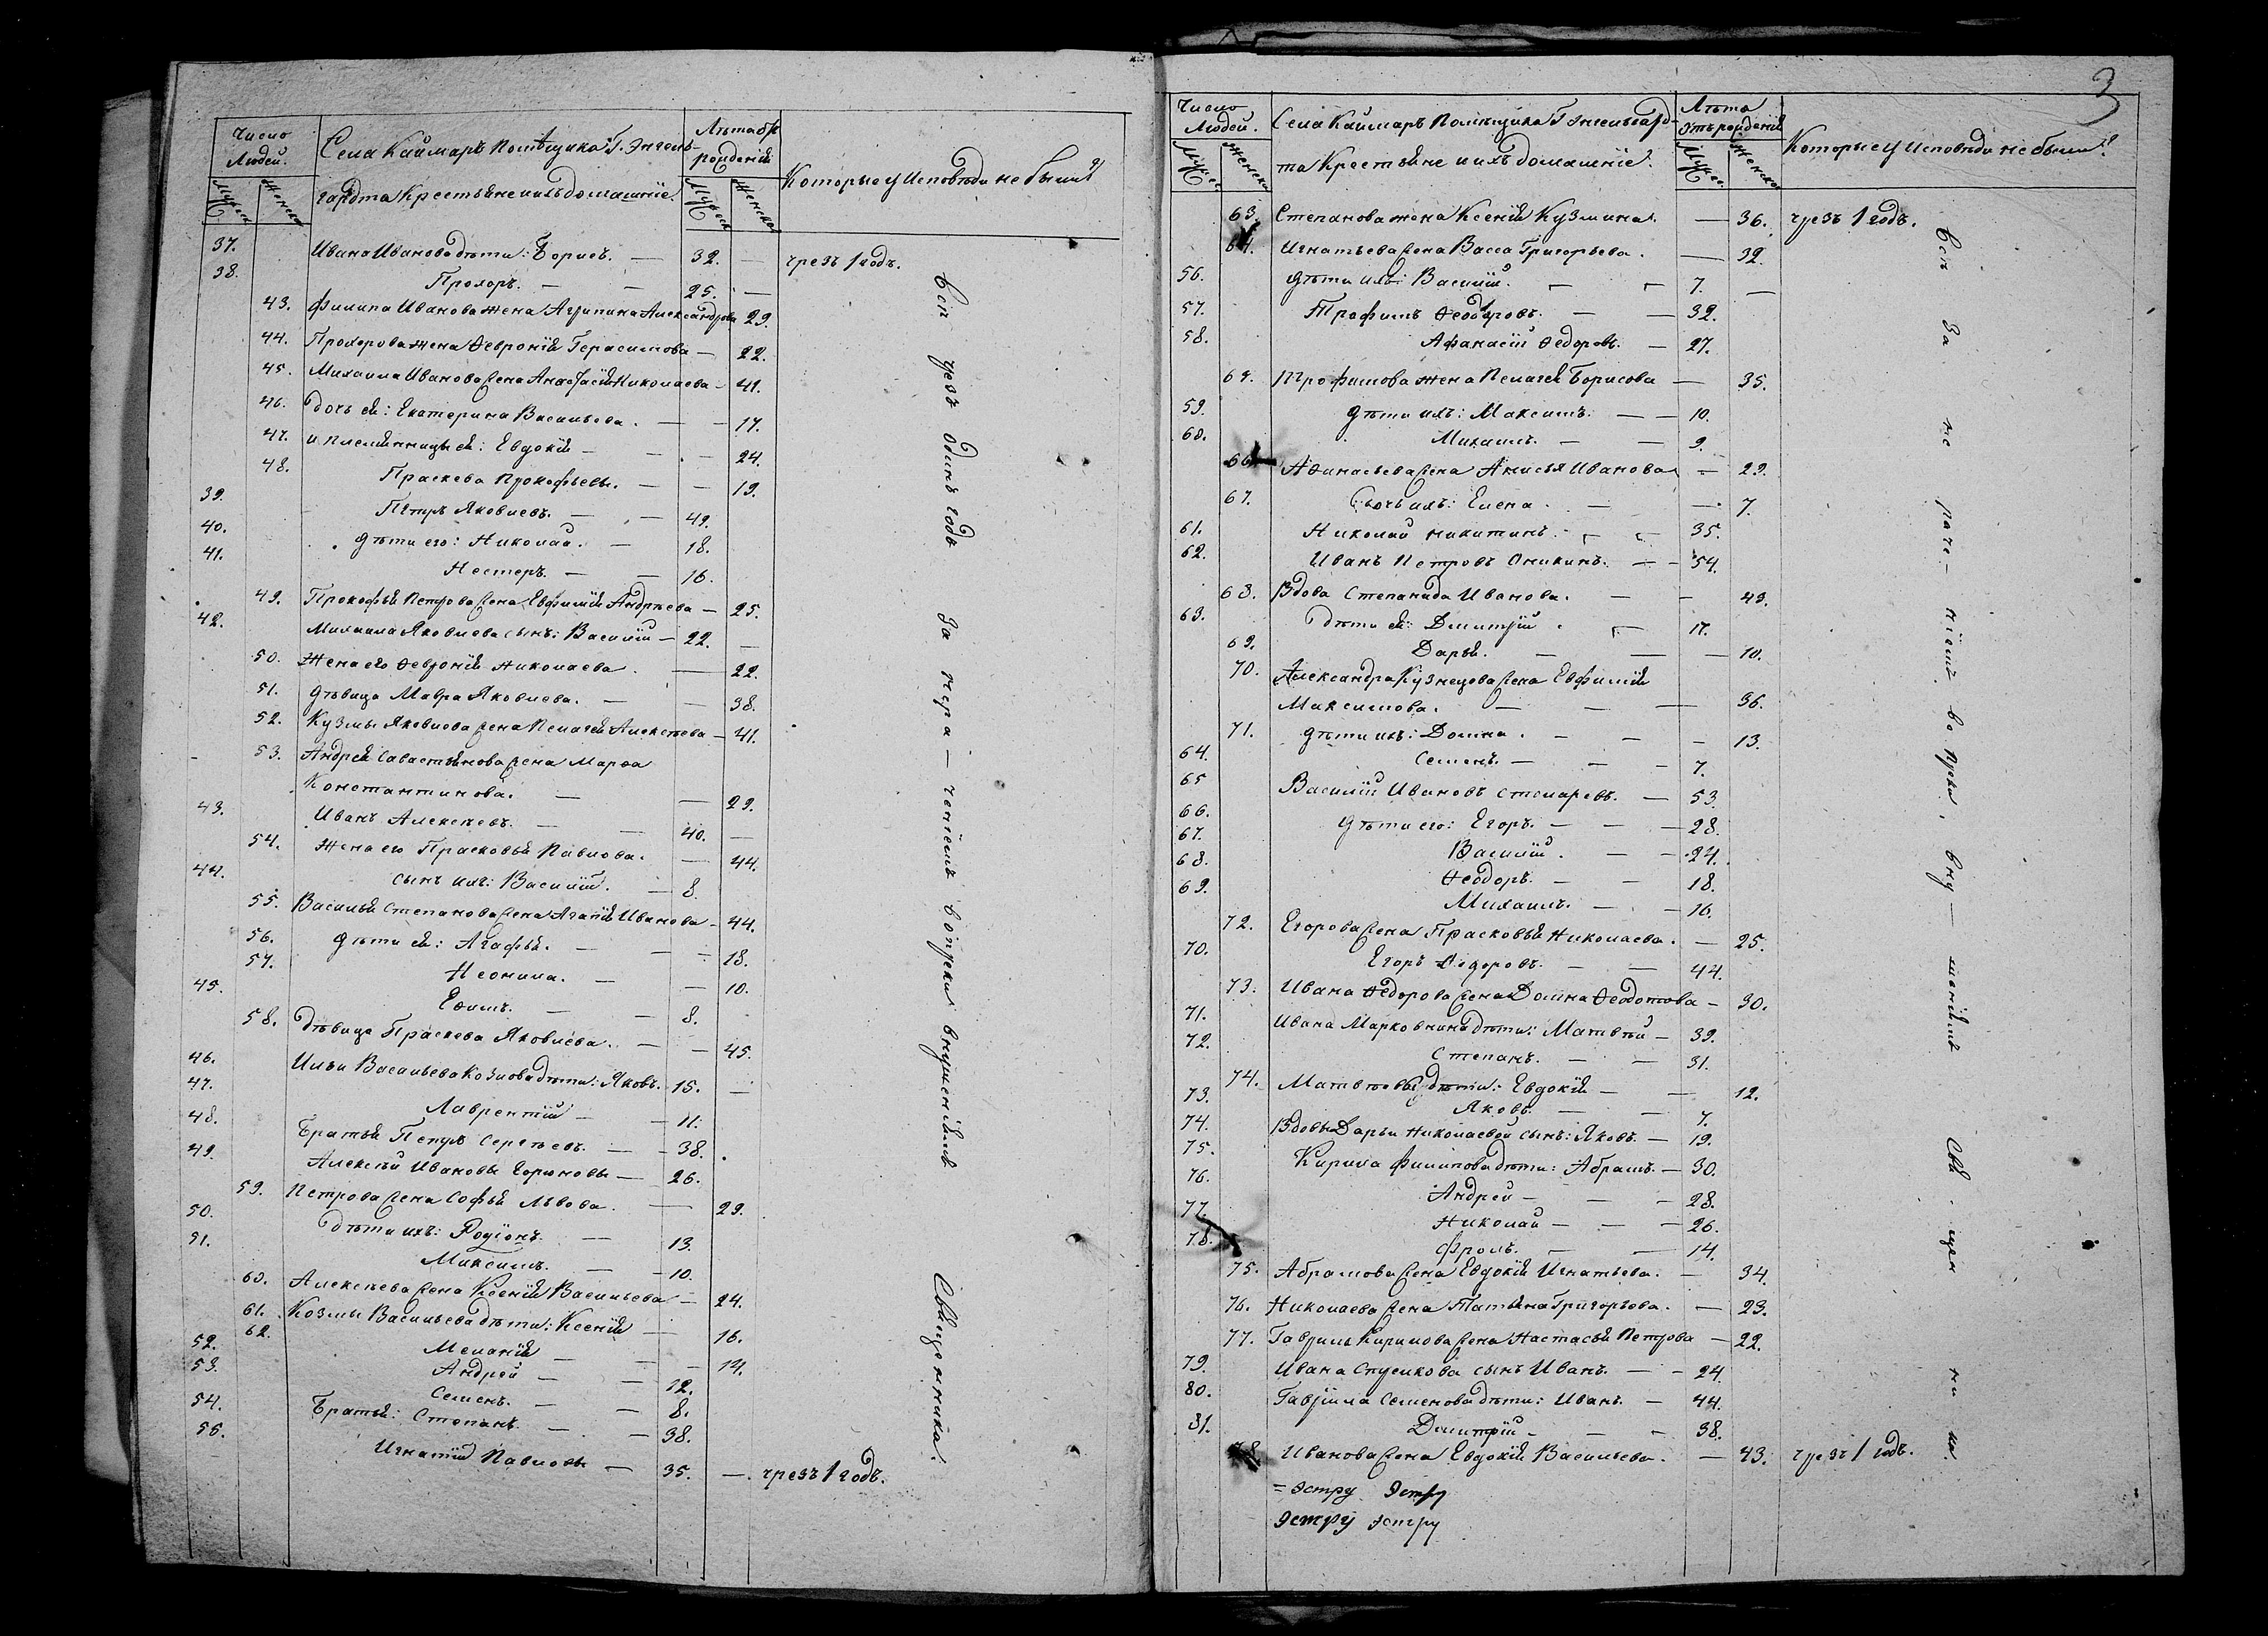 Число Людей.
Села Каймаръ Помѣщика Г. Энгель-
гардта Крестьяне и ихъ домашнїе.
Лѣта отъ рожденїя
Которые у Исповѣди не были?
Мужеск
Женска
Мужеск
Женска
37. Ивана Иванова дѣти: Борисъ. — 32. — чрезъ 1 годъ.
38. Прохоръ. — — 25. —
43. Филипа Иванова жена Агрипина Александрова 29.
44. Прохорова жена Ѳевронїя Герасимова — 22.
45. Михаила Иванова жена Анастасїя Николаева — 41.
46. Дочь ея: Екатерина Васильева. — — 17.
47. и племянницы ея: Евдокїя — — — 24.
48. Праскева Прокофьевы. — — 19.
39. Петръ Яковлевъ. — — 49.
40. дѣти его: Николай. — 18.
41. Нестеръ. — — 16.
49. Прокофья Петрова жена Евфимїя Андрѣева — 25.
42. Михаила Яковлева сынъ: Василїй — 22. —
50. Жена его Ѳевронїя Николаева. — 22.
51. дѣвица Мавра Яковлева. — — 38.
52. Кузмы Яковлева жена Пелагея Алексѣева — 41.
53. Андрея Савастьянова жена Марѳа
Константинова. — — 29.
43. Иванъ Алексѣевъ. — — 40. —
54. Жена его Прасковья Павлова. — 44.
44. сынъ ихъ: Василїй. — 8.
55. Василья Степанова жена Агапїя Иванова — 44.
56. дѣти ея: Агафья. — — — 18.
57. Неонила. — — 10.
45. Еѳимъ. — — 8.
58. дѣвица Праскева Яковлева. — — 45.
46. Ильи Васильева Козлова дѣти: Яковъ. 15. —
47. Лаврентїй — — 11.
48. Братья Петръ Сергѣевъ. — — 38.
49. Алексѣй Ивановы Горюновы — 26.
59. Петрова жена Софья Львова. — 29.
50. дѣти ихъ: Родїонъ. — 13.
51. Максимъ. — — 10.
60. Алексѣева жена Ксенїя Васильева — 24.
61. Козмы Васильева дѣти: Ксенїя — 16.
62. Меланїя — — — 14.
52. Андрей — — 12.
53. Семенъ. — — 8.
54. Братья: Степанъ. — — 38.
55. Игнатїй Павловы — 35. —. чрезъ 1 годъ.
Всѣ чрезъ одинъ годъ За нера-ченїемъ вопреки внушенїямъ Священника.
3
Число Людей.
Села Каймаръ Помѣщика Г. Энгельгард-
та Крестьяне и ихъ домашнїе.
Лѣта Отъ рожденїя
Которые У Исповѣди не были?
Мужес
Женска
Мужес
Женска
63. Степанова жена Ксенїя Кузмина. — 36. чрезъ 1 годъ.
64. Игнатьева жена Васса Григорьева. — 32.
56. дѣти ихъ: Василїй. — — 7. —
57. Трофимъ Ѳеодоровъ. — — 32.
58. Афанасїй Ѳедоровъ. — 27.
65. Трофимова жена Пелагея Борисова — 35.
59. дѣти ихъ: Максимъ. — — 10.
60. Михаилъ. — — 9.
66. Аѳинасьева жена Анисья Иванова — 29.
67. дочь ихъ: Елена. — — 7.
61. Николай Никитинъ. — — 35.
62. Иванъ Петровъ Оникинъ. — — 54.
68. Вдова Степанида Иванова. — — 49.
63. дѣти ея: Димитрїй. — 17.
69. Дарья. — — — 10.
70. Александра Кузнецова жена Евфимїя
Максимова. — — — 36.
71. дѣти ихъ: Домна. — — — 13.
64. Семенъ. — — — 7.
65 Василїй Ивановъ Столяровъ. — 53.
66. дѣти его: Егоръ. — — — 28.
67. Василїй. — — 24.
68. Ѳеодоръ. — — 18.
69. Михаилъ. — — 16.
72. Егорова жена Прасковья Николаева. — 25.
70. Егоръ Ѳедоровъ. — — 44.
73. Ивана Ѳедорова жена Домна Ѳеодотова — 30.
71. Ивана Марковнина дѣти: Матвѣй — 39.
72. Степанъ. — — 31.
74. Матвѣевы дѣти: Евдокїя — — 12.
73. Яковъ. — — 7.
74. Вдовы Дарьи Николаевой сынъ: Яковъ. — 19.
75. Кирила Филипова дѣти: Абрамъ. — 30.
76. Андрей — — — 28.
77. Николай — — — 26.
78. Фролъ. — — 14.
75. Абрамова жена Евдокїя Игнатьева. — 34.
76. Николаева жена Татьяна Григорьева. — 23.
77. Гаврилы Кирилова жена Настасья Петрова — 22.
79. Ивана Ступикова сынъ Иванъ. — — 24.
80. Гаврїила Семенова дѣти: Иванъ. — 44.
81. Димитрїй — — — 38.
78. Иванова жена Евдокїя Васильева. — 43. чрезъ 1 годъ.
Всѣ За не раче-нїемъ во преки вну-шенїямъ Свя-щен ни ка.